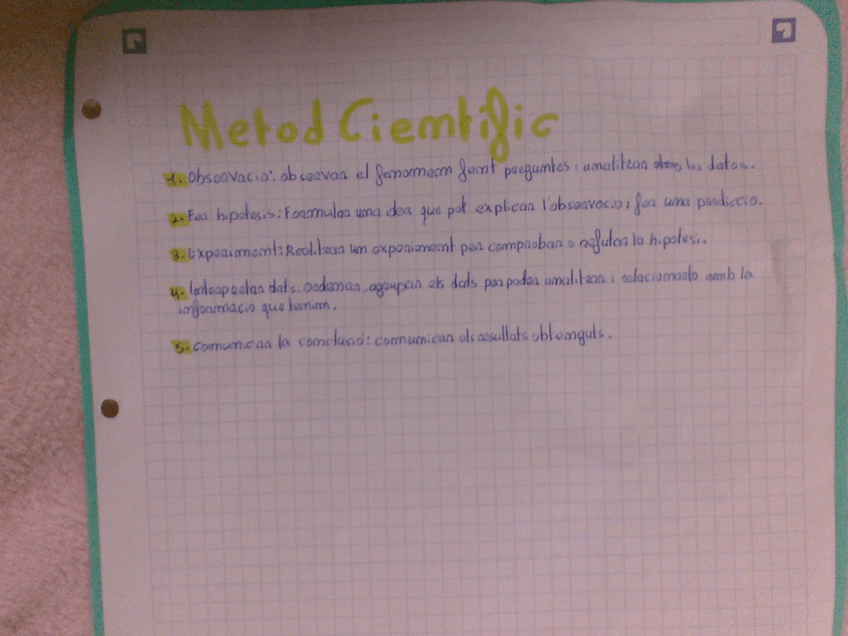 Metod Cientific
1. Observacio: observar el fenomem fent preguntes i analitzar las datos.
2. Fer hipotesis: Formular una idea que pot explicar l'observacio i fer una prediccio.
3. Experiment: Realitzar un experiment per comprobar o refutar la hipotesi.
4. Interpretar dats: ordenar, agrupar els dats per poder analitzar i relacionarlo amb la
informacio que tenim.
5. Comunicar la conclusió: comunicar els resultats obtenguts.